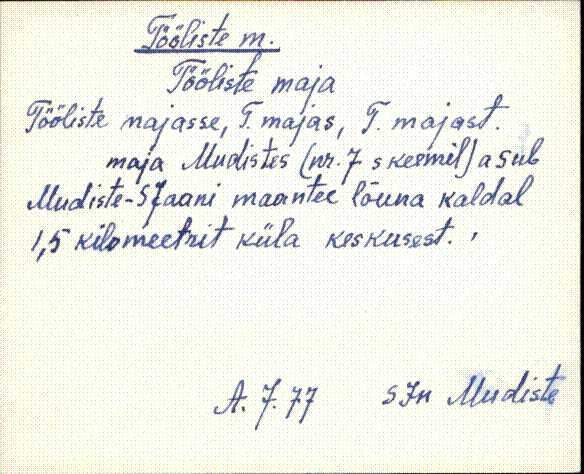 Tööliste m.
Tööliste maja
Tööliste majasse, T. majas, T. majast.
maja Mudistes (nr. 7 skeemil) asub
Mudiste-SJaani maantee lõuna kaldal
1,5 kilomeetrit küla keskusest.
A. J. 77 SJn Mudiste